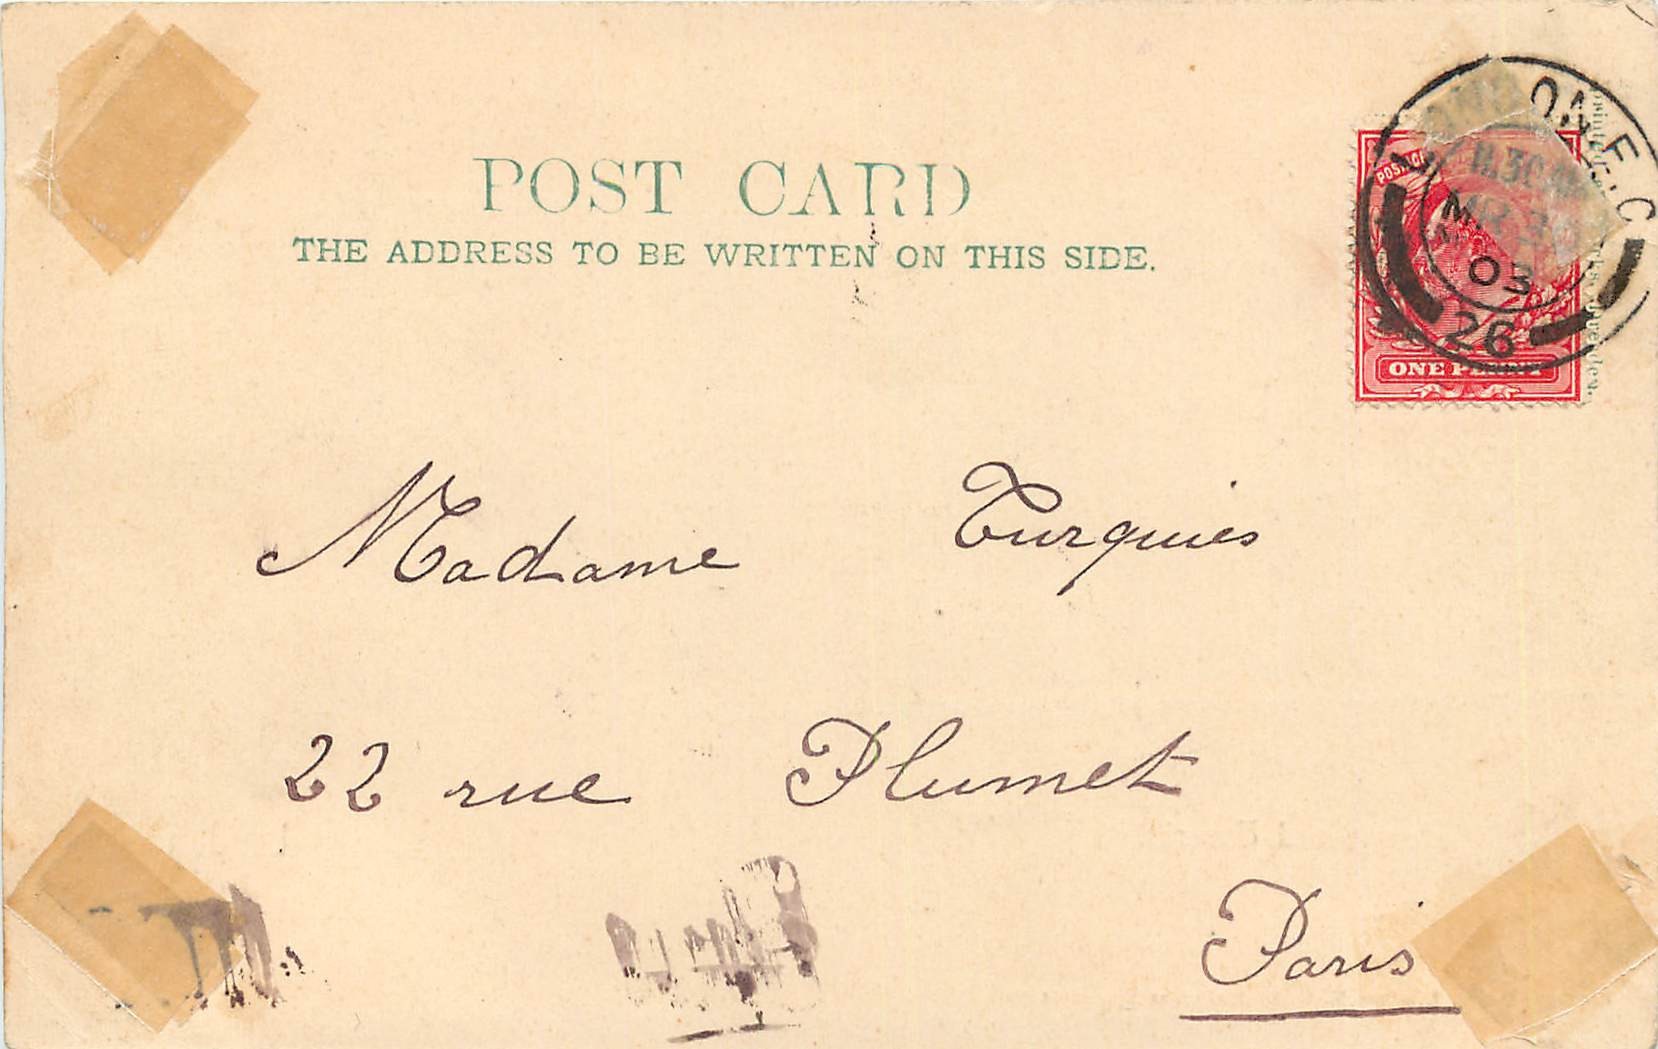 POST CARD
THE ADDRESS TO BE WRITTEN ON THIS SIDE.
LONDON.E.C
11.30 AM
MR 3
03
26
POSTAGE
ONE PENNY
Madame Turquies
22 rue Plumet
Paris